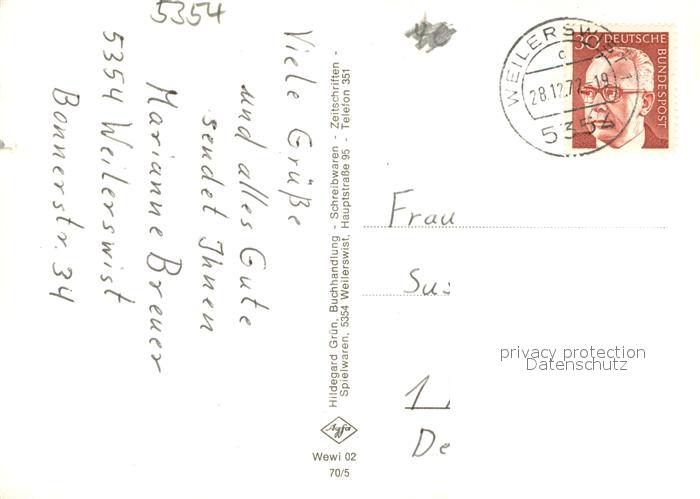 5354
Viele Grüße
und alles Gute
sendet Ihnen
Marianne Breuer
5354 Weilerswist
Bonnerstr. 34
Hildegard Grün, Buchhandlung - Schreibwaren - Zeitschriften -
Spielwaren, 5354 Weilerswist, Hauptstraße 95 - Telefon 351
Agfa
Wewi 02
70/5
WEILERSWIST 1
c
28.12.72-19
5354
30 DEUTSCHE
BUNDESPOST
Frau
Su
1
De
privacy protection
Datenschutz